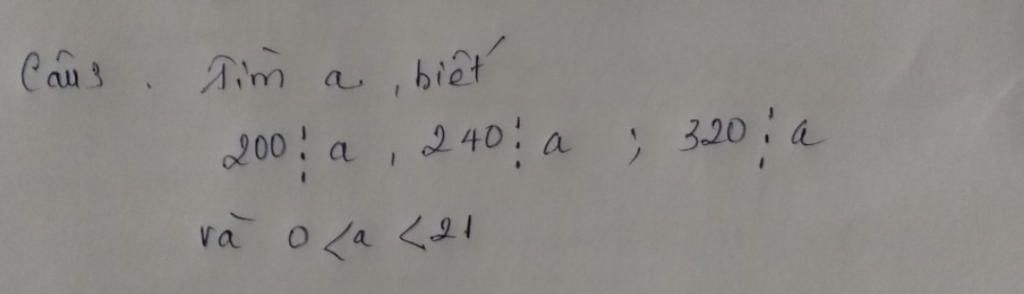 Câu 3. Tìm a, biết
200 ⋮ a, 240 ⋮ a ; 320 ⋮ a
và 0 < a < 21